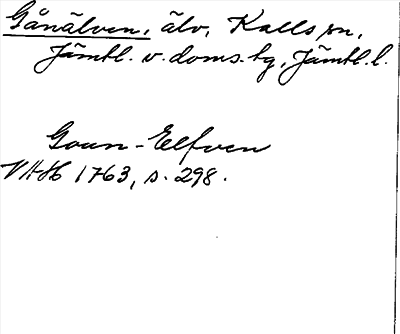 Gånälven, älv, Kalls sn,
Jämtl. v. doms.tg, Jämtl. l.
Goun-Elfven
VAH 1763, s. 298.